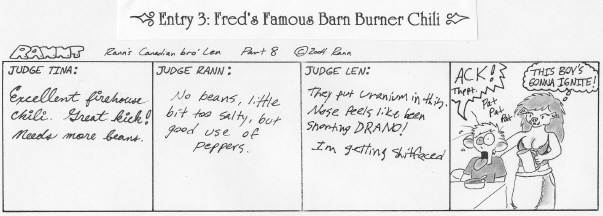 Entry 3: Fred's Famous Barn Burner Chili
RANNT Rann's Canadian bro' Len Part 8 ©2004 Rann
JUDGE TINA:
Excellent firehouse
chili. Great kick!
Needs more beans.
JUDGE RANN:
No beans, little
bit too salty, but
good use of
peppers.
JUDGE LEN:
They put uranium in this,
Nose feels like been
snorting DRANO!
I'm getting shitfaced
ACK!
Thppt.
Pat
Pat
Pat
THIS BOY'S
GONNA IGNITE!